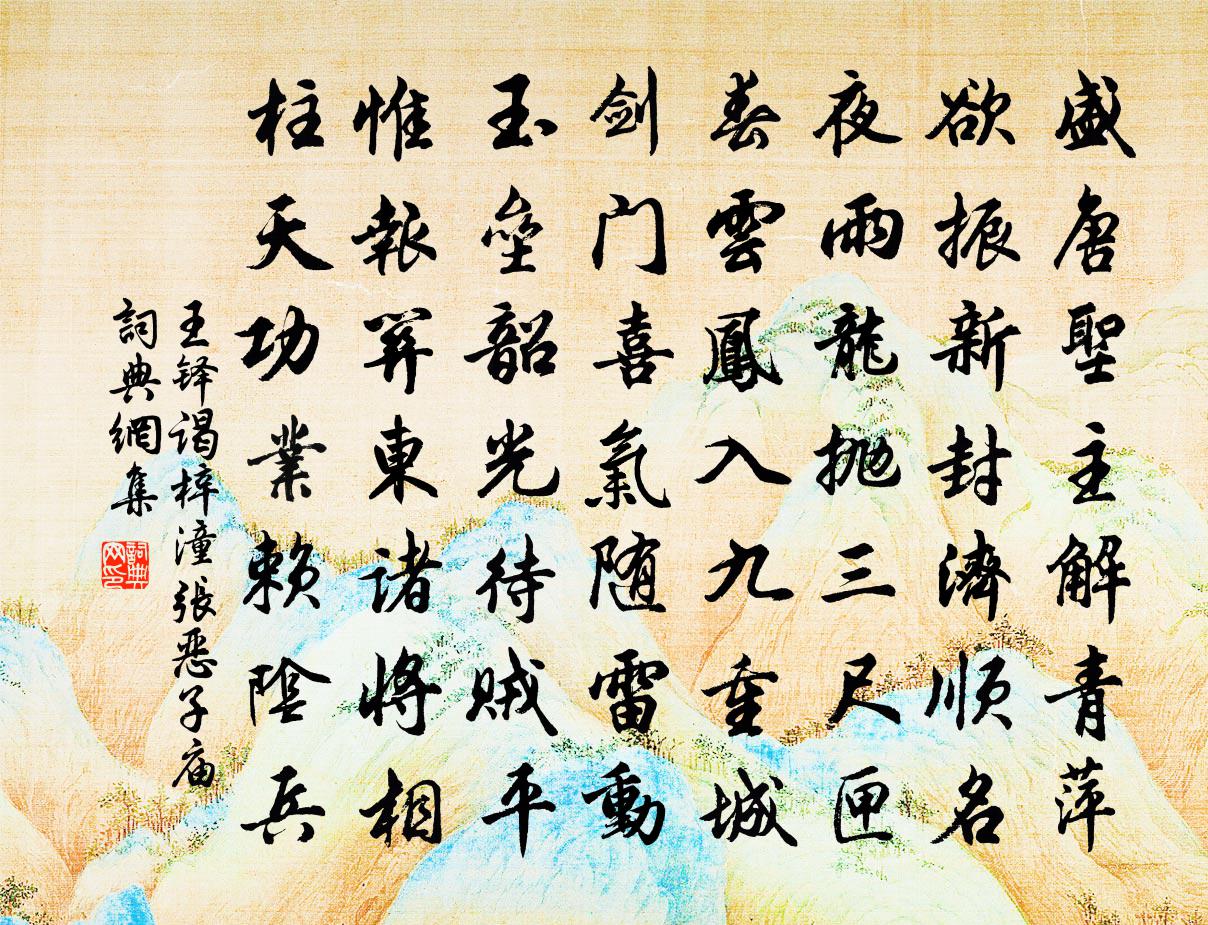 盛唐聖主解青萍
欲振新封濟順名
夜雨龍抛三尺匣
春雲鳳入九重城
劍门喜氣随雷動
玉壘韶光待賊平
惟報關東諸將相
柱天功業赖陰兵
王铎谒梓潼張恶子庙
詞典網集
詞典网印